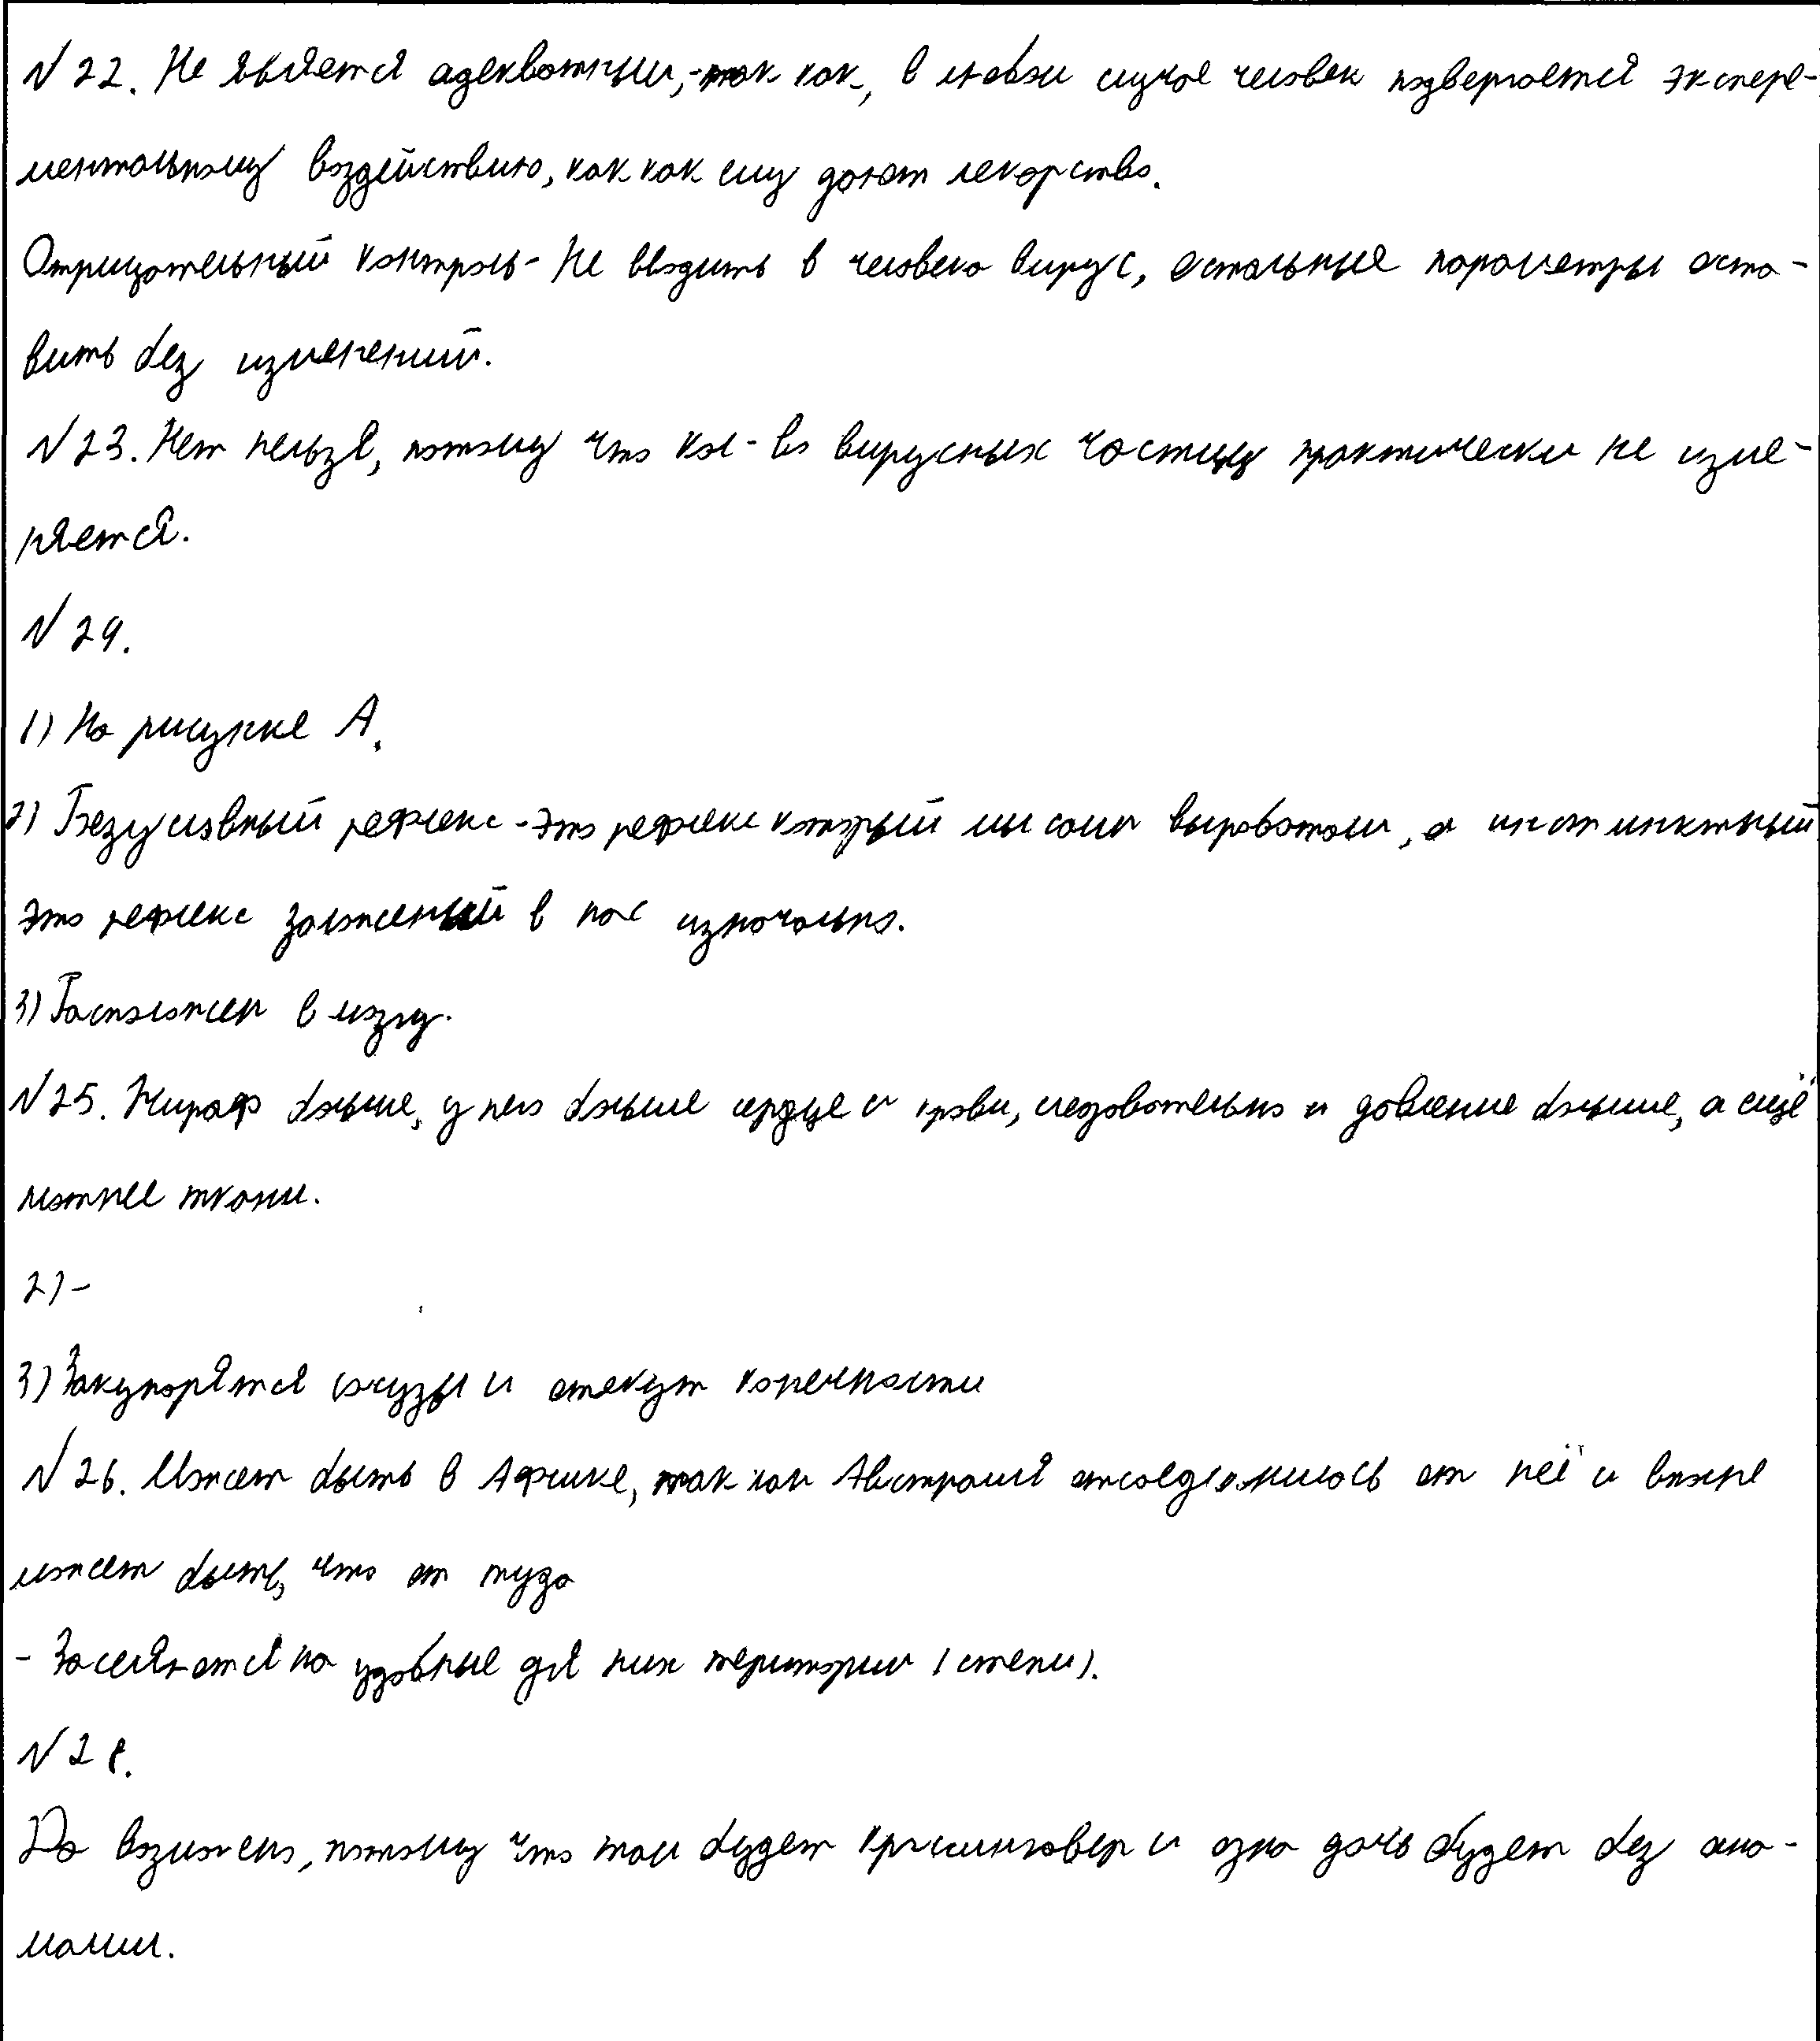 № 22. Не является адекватным, так как, в любом случае человек подвергается экспере-
ментальному воздействию, как как ему дают лекарство.
Отрицательный контроль - Не вводить в человека вирус, остальные параметры оста-
вить без изменений.
№ 23. Нет нельзя, потому что кол-во вирусных частиц практически не изме-
няется.
№ 24.
1) На рисунке А.
2) Безусловный рефлекс - это рефлекс который мы сами выработали, а инстинктный
это рефлекс заложенный в нас изначально.
3) Расположен в мозгу.
№ 25. Жираф больше, у него больше сердце и крови, следовательно и давление больше, а ещё
плотнее ткани.
2) -
3) Закупорятся сосуды и отекут конечности
№ 26. Может быть в Африке, так как Австралия отсоединилась от неё и вполне
может быть, что от туда
- Заселяются на удобные для них територии (степи).
№ 28.
Да возможно, потому что там будет кроссинговер и одна дочь будет без ано-
малии.